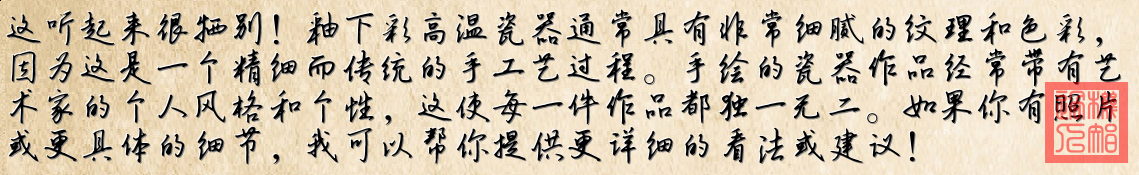 这听起来很特别！釉下彩高温瓷器通常具有非常细腻的纹理和色彩，
因为这是一个精细而传统的手工艺过程。手绘的瓷器作品经常带有艺
术家的个人风格和个性，这使每一件作品都独一无二。如果你有照片
或更具体的细节，我可以帮你提供更详细的看法或建议！